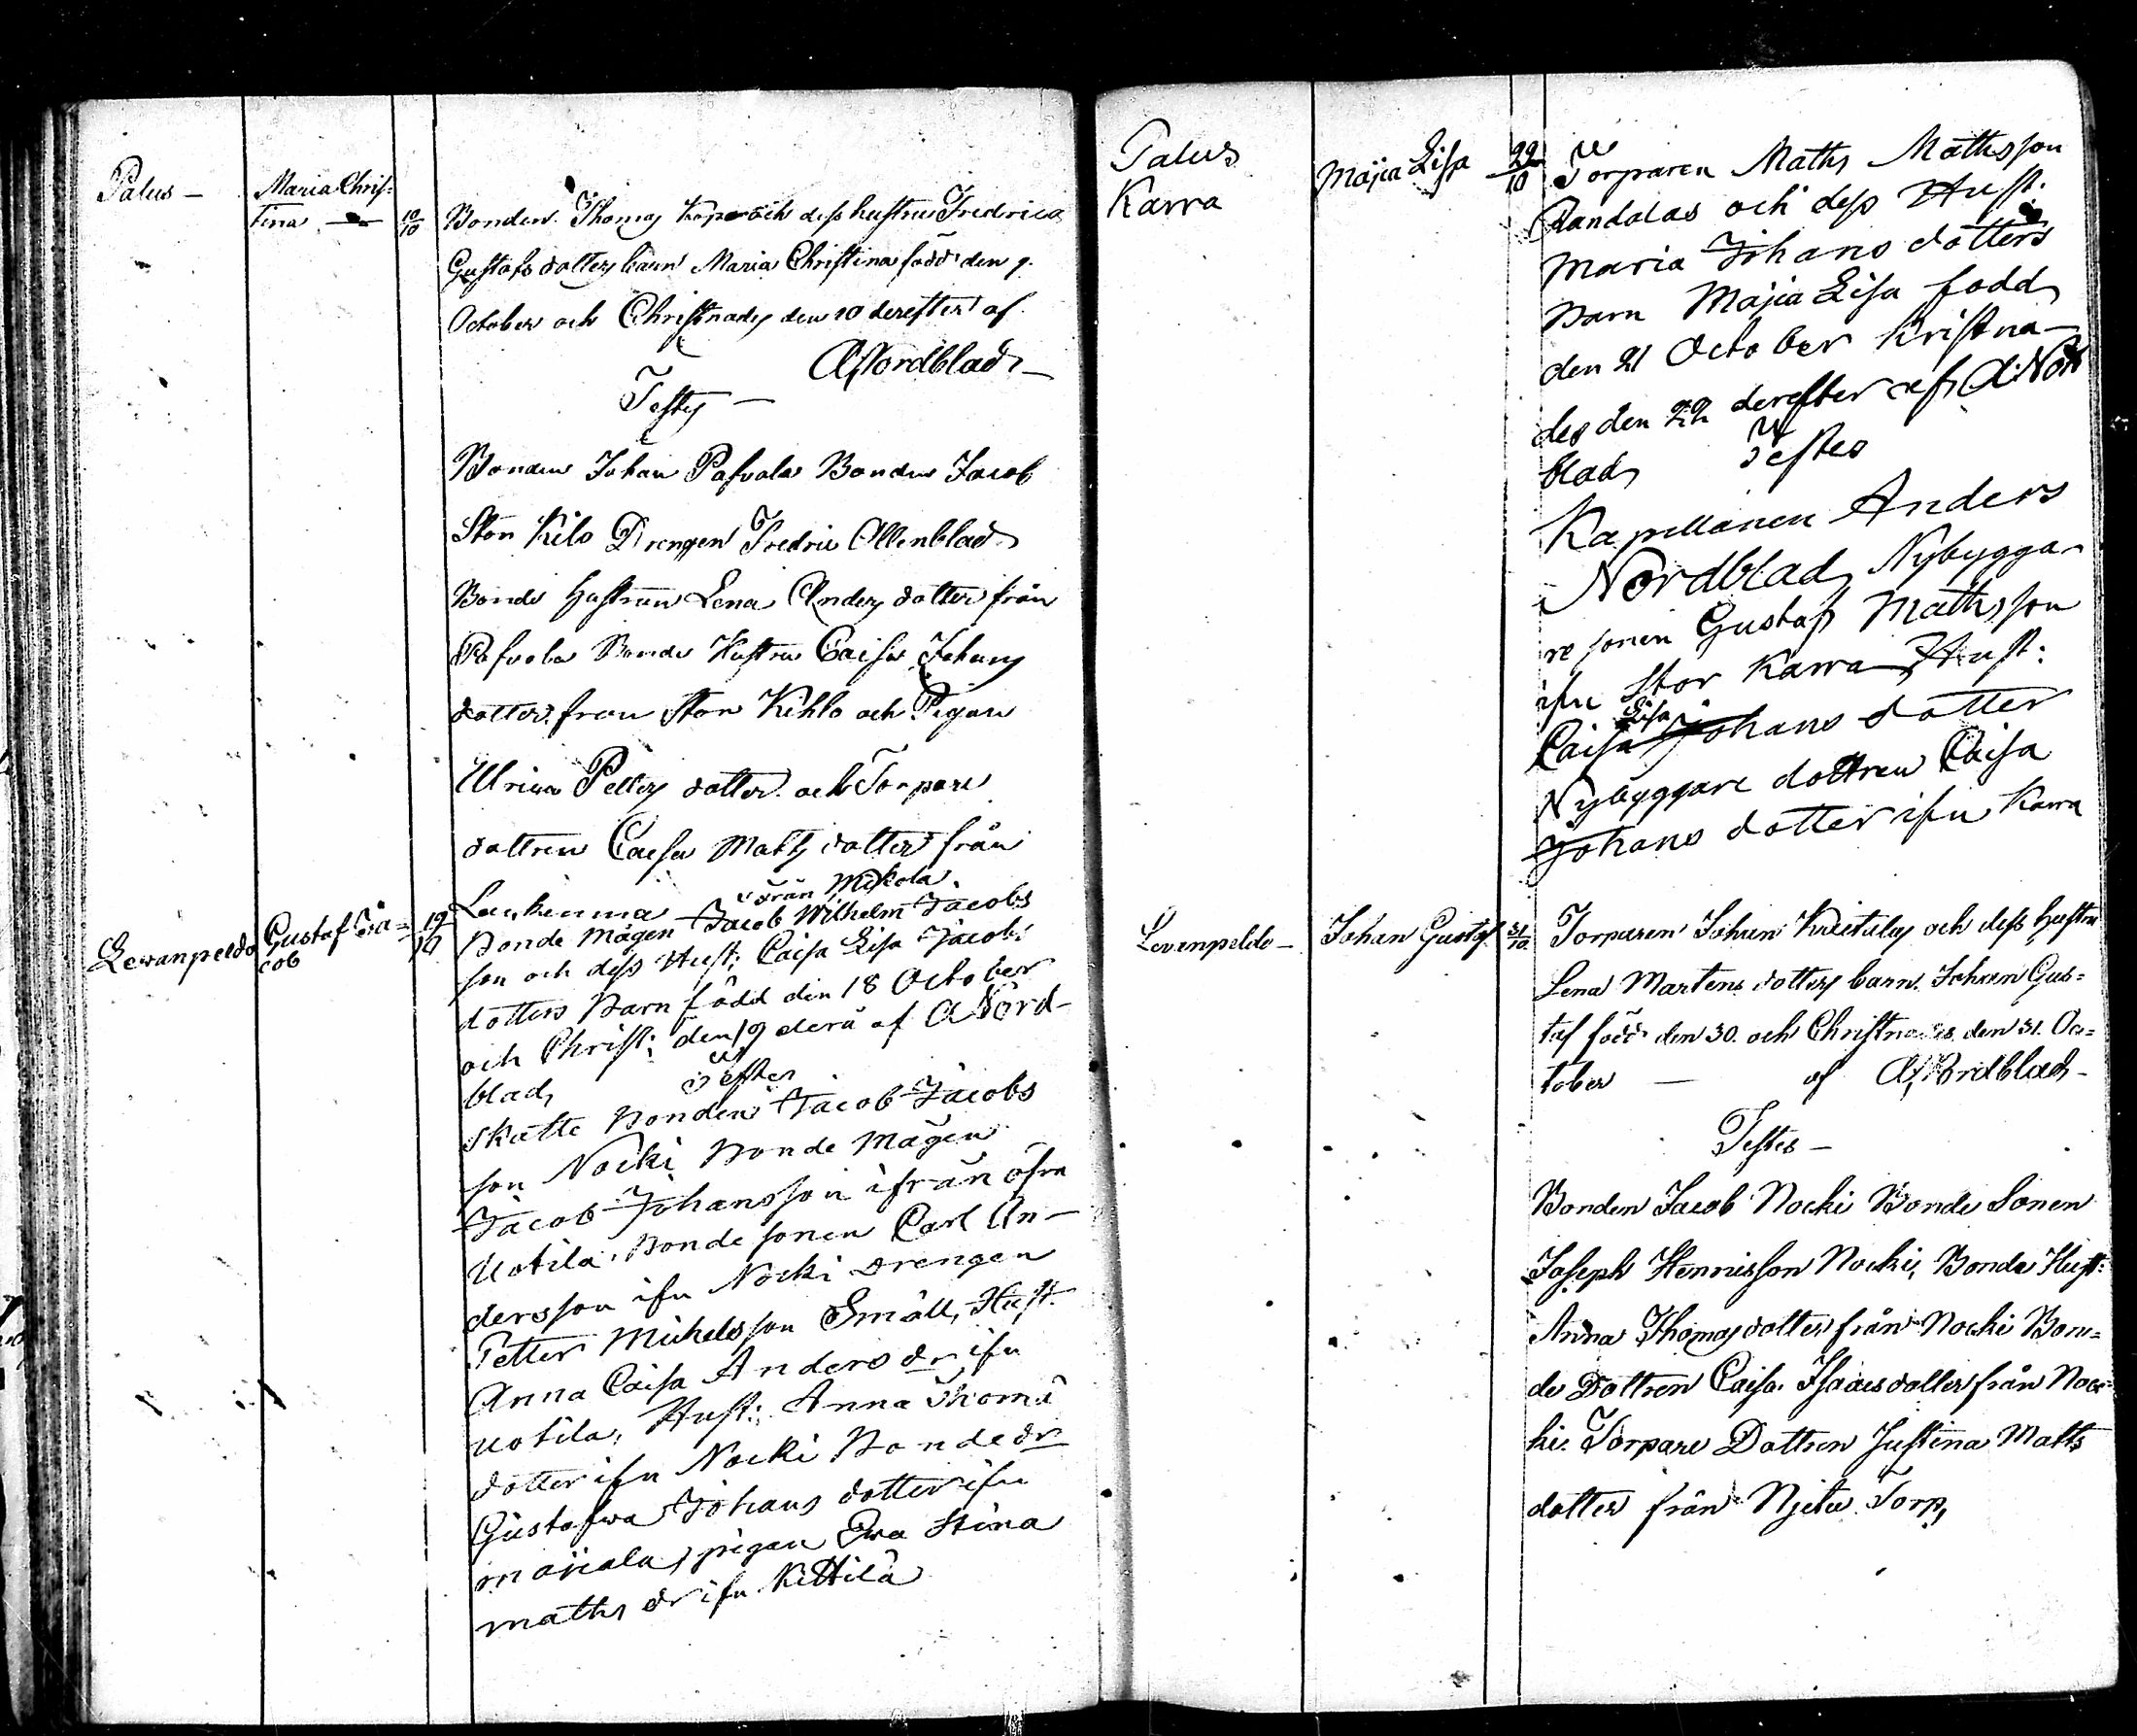 Palus —
Maria Chris=
tina —
10/10
Bonden Thomas Körpe och dess hustru Fredrica
Gustafs dotters barn Maria Christina född den 9.
October och Christnades den 10 derefter af
A Nordblad —
Testes —
Bonden Johan Pafvola Bonden Jacob
Stor Kilo Drengen Fredric Allenblad
Bonde hustrun Lena Anders dotter från
Pafvola Bonde Hustru Caisa Johans
dotter från Stor Kihlo och Pigan
Ulrica Petters dotter och Torpare
dottren Caisa Matts dotter från
Levanpeldo
Gustaf Ja=
cob
19/10
från Mikola
Bonde Mågen Jacob Wilhelm Jacobs
son och dess Hust: Caisa Lisa Jacobs
dotters Barn född den 18 October
och Christ: den 19 derå af A Nord-
blad,
Testes
Skatte Bonden Jacob Jacobs
son Nocki Bonde Mågen
Jacob Johansson ifrån öfra
Uotila, Bonde sonen Carl An-
dersson ifrn Nocki Drengen
Petter Mickelsson Småll, Hust.
Anna Caisa Anders dr ifrn
uotila, Hust: Anna Thoms
dotter ifrn Nocki Bonde dr
Gustafwa Johans dotter ifrn
pigan Ewa Stina
Maths dr ifrn Kittilä
Palus
Karra
Majia Lisa
22/10
Torparen Maths Mathsson
Randalas och dess Hust.
Maria Johans dotters
Barn Majia Lisa född
den 21 October Kristna-
des den 22 derefter af A: Nord
blad,
Testes
Kapellanen Anders
Nordblad, Nybygga-
re sonen Gustaf Mathsson
ifrn Stor Karra, Hust:
Lisa
Caisa Johans dotter
Nybyggare dottren Caisa
Johans dotter ifrn Karra
Levenpeldo —
Johan Gustaf
31/10
Torparen Johan Kuitulas och dess hustru
Lena Martens dotters barn Johan Gus=
taf född den 30. och Christnades den 31. Oc=
tober — af A. Nordblad —
Testes —
Bonden Jacob Nocki Bonde Sonen
Joseph Henricsson Nocki, Bonde Hust:
Anna Thomas dotter från Nocki Bon=
de Dottren Caisa Isaacs dotter från Noc=
ki. Torpare Dottren Justina Matts
dotter från Torp,